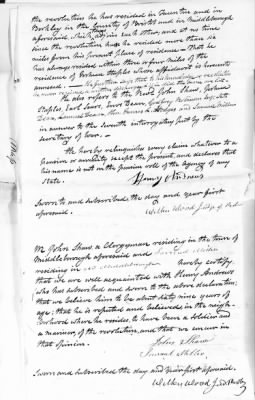 the revolution he has resided in Taunton and in
Berkley in the County of Bristol and in Middleborough
aforesaid, which adjoin each other; and at no time
since the revolution has he resided more than six
miles from his present place of residence — That he
has always resided within three or four miles of the
residence of Joshua Staples whose affidavit is hereunto
annexed
He also refers to the Revd. John Shaw, Joshua
Staples, Earl Sears, Enos Dean,
Dean, Samuel Dean, and
in answer to the seventh interrogatory put by the
secretary of war. —
He hereby relinquishes every claim whatever to a
pension or annuity except the present, and declares that
his name is not on the pension role of the agency of any
State.
Henry Andrews
Sworn to and subscribed the day and year first
aforesaid.
Wilkes Wood Judge of Prob.
We John Shaw a Clergyman residing in the town of
Middleborough aforesaid and
residing in hereby certify,
that we are well acquainted with Henry Andrews
who has subscribed and sworn to the above declaration;
that we believe him to be about sixty nine years of
age; that he is reputed and believed in the neigh-
borhood where he resides to have been a soldier and
a marine of the revolution, and that we concur in
that opinion.
John Shaw
Sworn and subscribed the day and year first aforesaid.
Wilkes Wood J. of Prob.